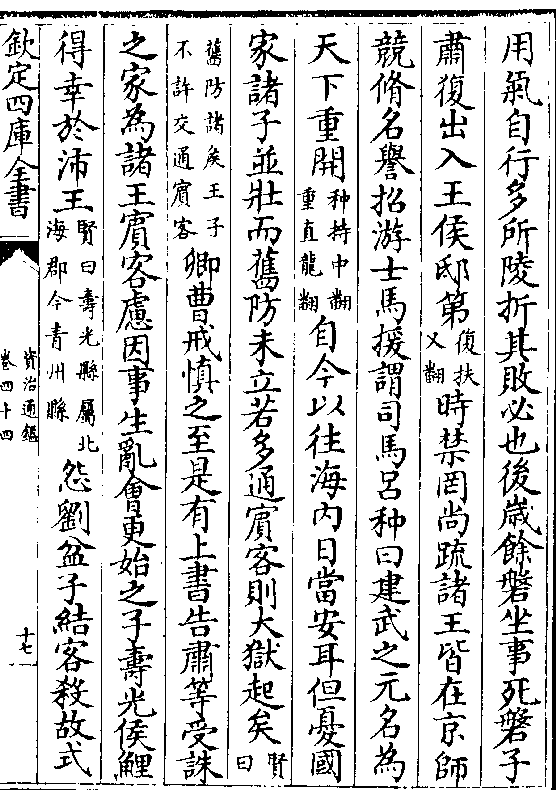 用氣自行多所陵折其敗必也後歲餘磐坐事死磐子
肅復出入王侯邸第復扶又翻時禁罔尚疏諸王皆在京師
競脩名譽招游士馬援謂司馬呂种曰建武之元名為
天下重開种持中翻重直龍翻自今以往海内日當安耳但憂國
家諸子並壯而舊防未立若多通賔客則大獄起矣賢曰
舊防諸矦王子不許交通賔客卿曹戒慎之至是有上書告肅等受誅
之家為諸王賔客慮因事生亂會更始之子壽光侯鯉
得幸於沛王賢曰壽光縣屬北海郡今青州縣怨劉盆子結客殺故式
欽定四庫全書
資治通鑑
卷四十四
十七